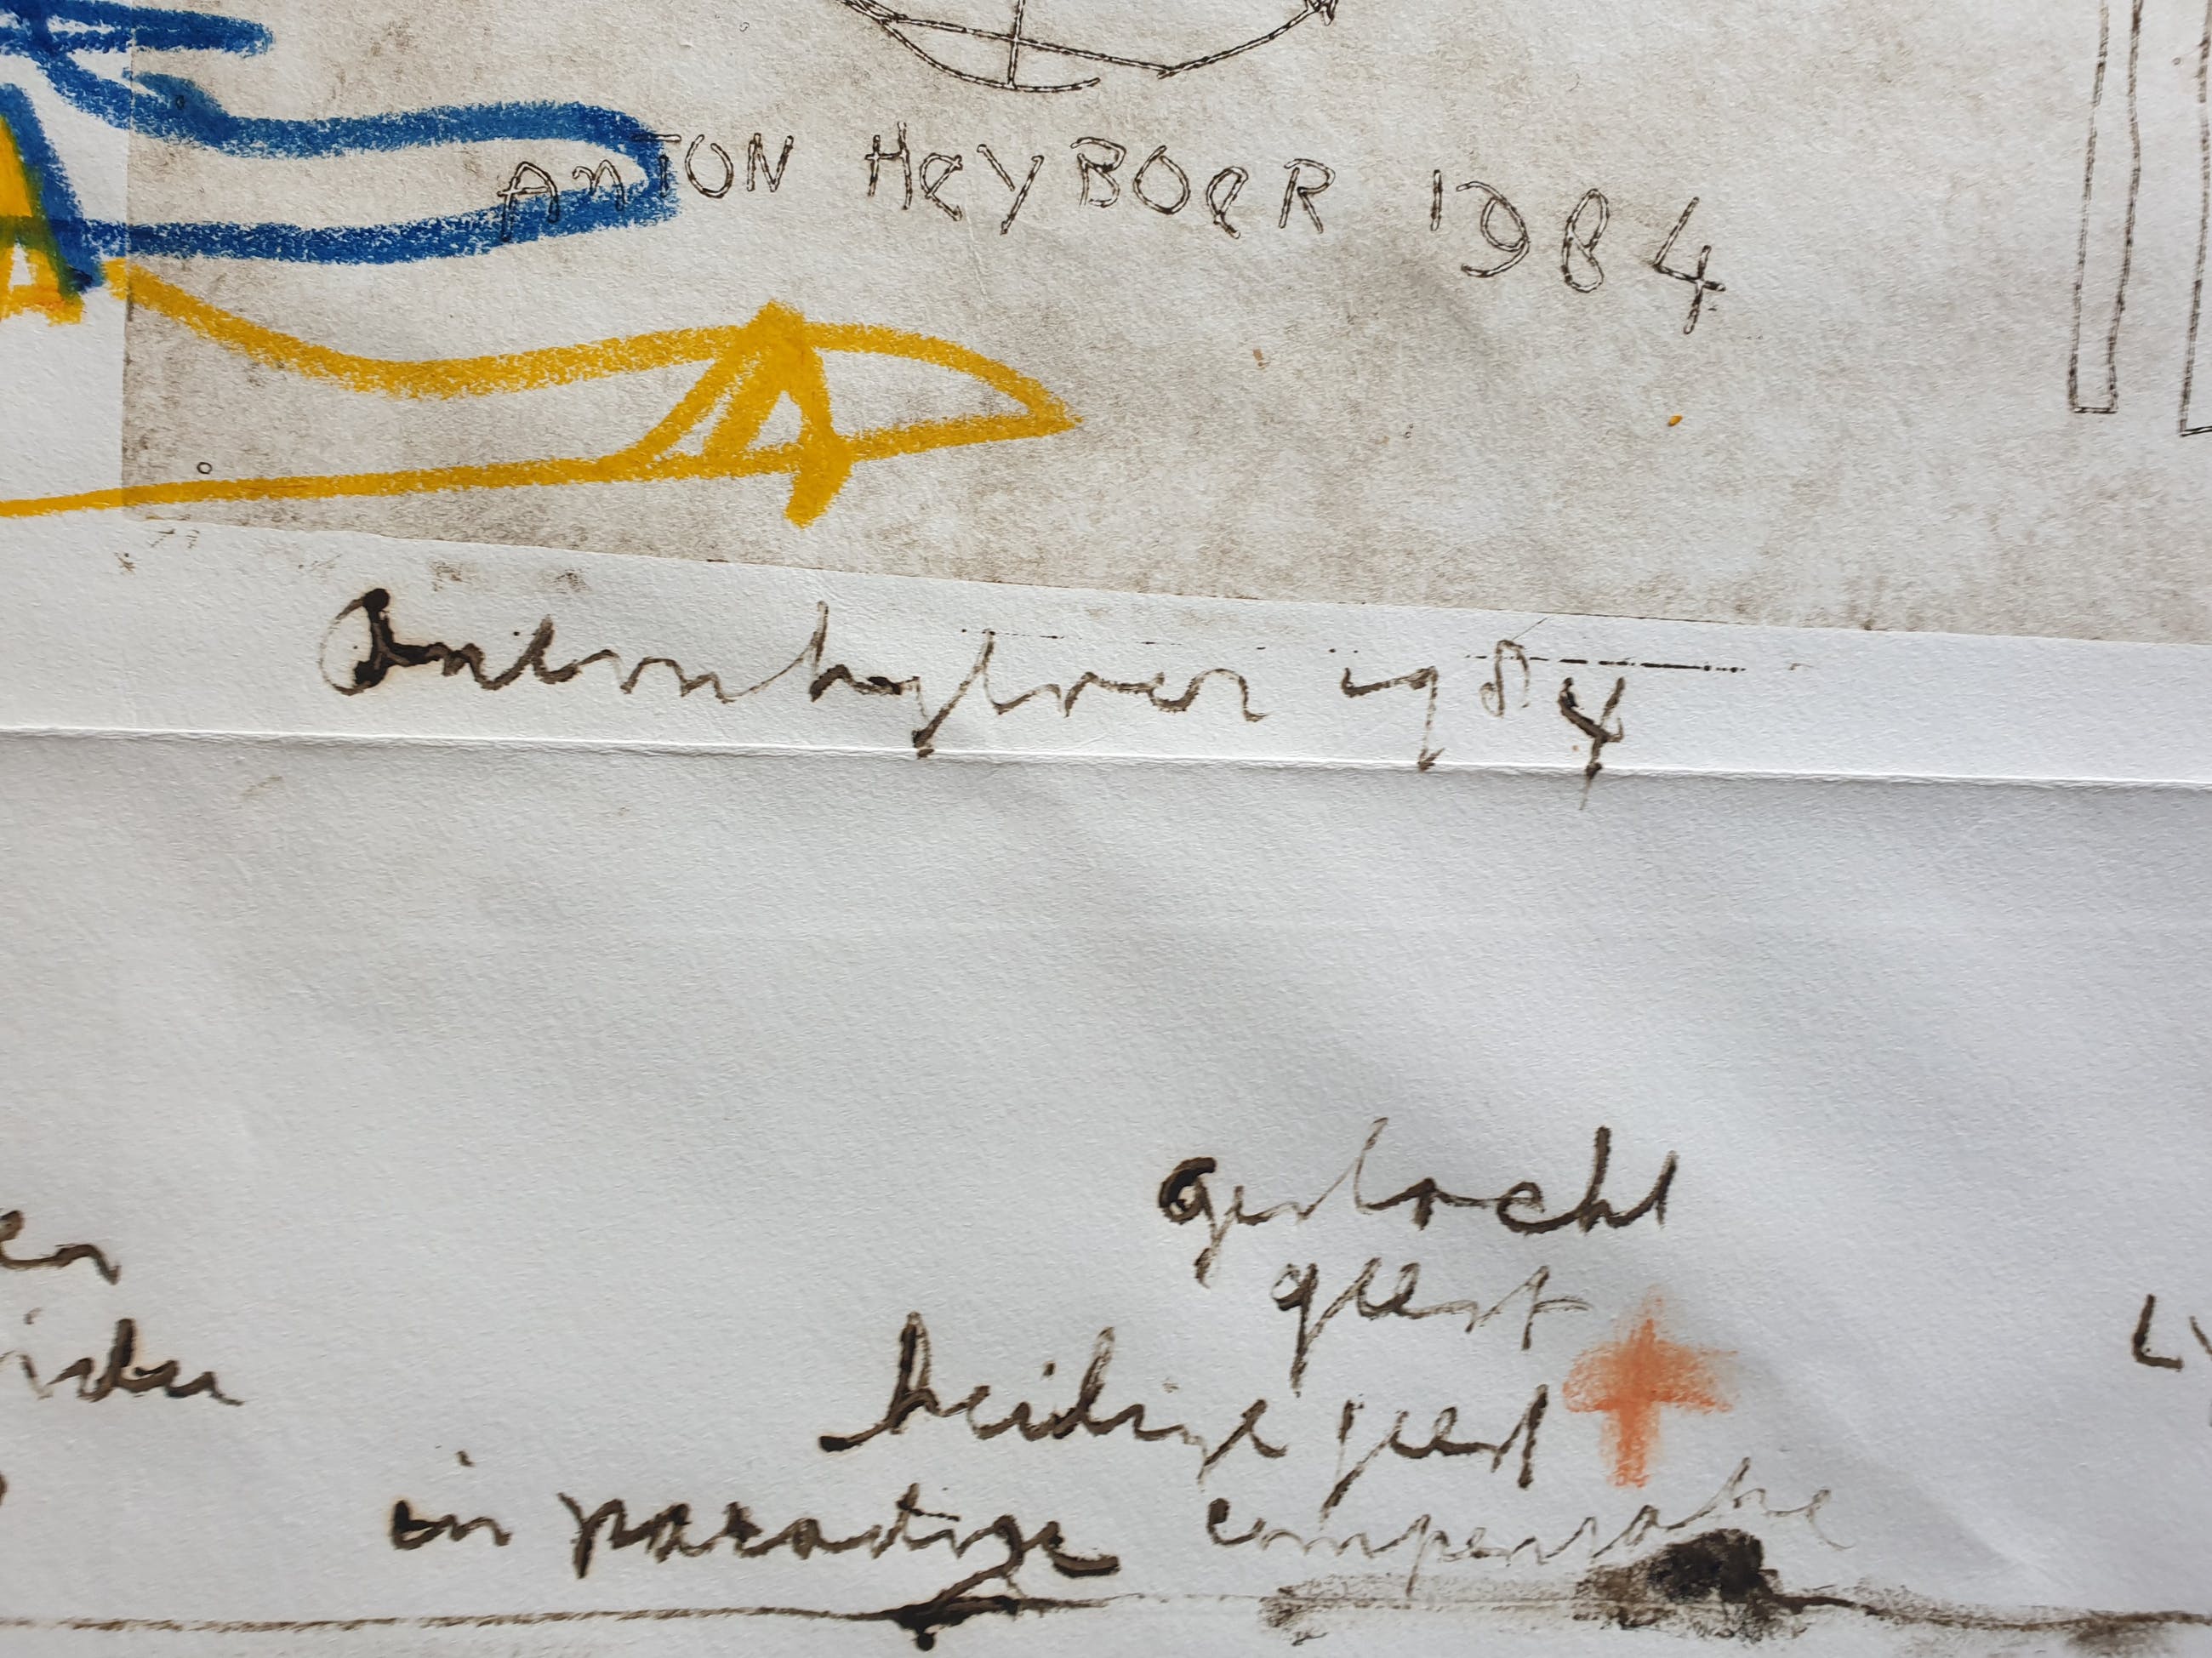 ANTON HEYBOER 1984
Anton heyboer 1984
geslacht
geest
heilige geest
in paradijze compensatie